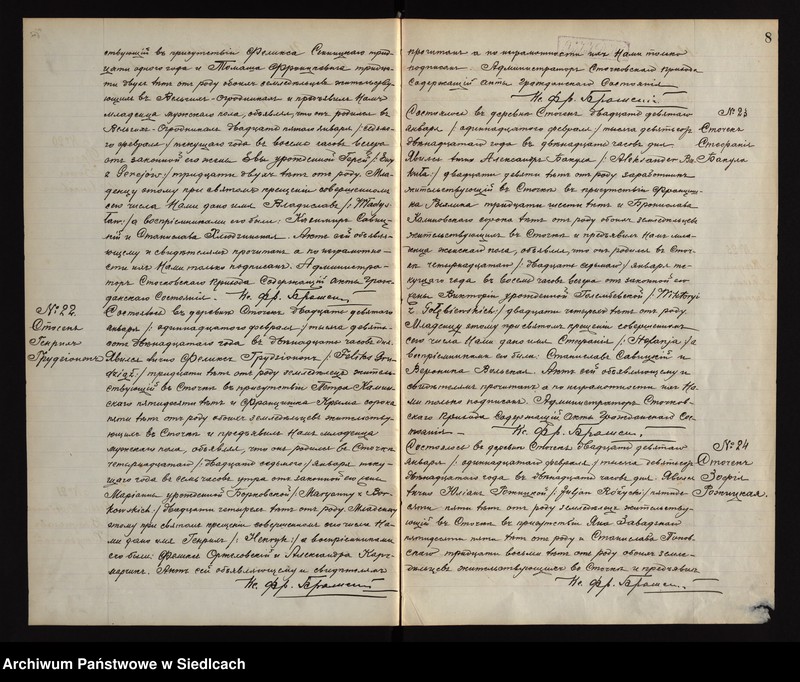 ствующiй въ присутствiи Феликса
цати одного года и Томаша тридца-
ти двухъ лѣтъ отъ роду обоихъ земледѣльцевъ жительству-
ющихъ въ и предъявилъ Намъ
младенца мужескаго пола, объявляя, что онъ родился въ
двадцать пятаго Января / седьма-
го Февраля / текущаго года въ восемь часовъ вечера
отъ законной его жены Евы урожденной
тридцати двухъ лѣтъ отъ роду. Мла-
денцу этому при святомъ крещенiи совершенномъ
сего числа Нами дано имя Владиславъ /: Włady-
sław :/ а воспрiемниками его были: Казимиръ Савиц-
кiй и Станислава Актъ сей объявля-
ющему и свидѣтелямъ прочитанъ а по неграмотно-
сти ихъ Нами только подписанъ. Администра-
торъ Сточковскаго Прихода Содержащiй акты Граж-
данскаго Состоянiя. Кс. Фр.
№ 22.
Сточекъ
Генрикъ
Грудзіонжъ
Состоялось въ деревнѣ Сточекъ двадцать девятаго
Января /: одиннадцатаго Февраля / тысяча девять-
сотъ двѣнадцатаго года въ двѣнадцать часовъ дня.
Явился лично Феликсъ Грудзіонжъ /: Feliks Gru-
dziąż :/ тридцати лѣтъ отъ роду земледѣлецъ житель-
ствующiй въ Сточкѣ въ присутствiи Петра Калин-
скаго пятидесяти лѣтъ и Францишка сорока
пяти лѣтъ отъ роду обоихъ земледѣльцевъ жительству-
ющихъ въ Сточкѣ и предъявилъ Намъ младенца
мужескаго пола, объявляя, что онъ родился въ Сточкѣ
четырнадцатаго /: двадцать седьмаго / Января теку-
щаго года въ семь часовъ утра отъ законной его жены
Марiанны урожденной Борковской /: Maryanny z Bor-
kowskich / двадцати четырехъ лѣтъ отъ роду. Младенцу
этому при святомъ крещенiи совершенномъ сего числа На-
ми дано имя Генрикъ /: Henryk :/ а воспрiемниками
его были: Феликсъ Орловскiй и Александра
Актъ сей объявляющему и свидѣтелямъ
Кс. Фр.
8
прочитанъ а по неграмотности ихъ Нами только
подписанъ. Администраторъ Сточковскаго Прихода
Содержащiй акты Гражданскаго Состоянiя
Кс. Фр.
№ 23
Сточекъ
Стефанiя
Бакула
Состоялось въ деревнѣ Сточекъ двадцать девятаго
Января /: одиннадцатаго Февраля / тысяча девятьсотъ
двѣнадцатаго года въ двѣнадцать часовъ дня.
Явился лично Александръ Бакула /: Aleksander Ba-
kuła :/ двадцати девяти лѣтъ отъ роду заработникъ
жительствующiй въ Сточкѣ въ присутствiи Францишка
тридцати шести лѣтъ и Бронислава
сорока лѣтъ отъ роду обоихъ земледѣльцевъ
жительствующихъ въ Сточкѣ и предъявилъ Намъ мла-
денца женскаго пола, объявляя, что онъ родился въ Сточ-
кѣ четырнадцатаго /: двадцать седьмаго / Января те-
кущаго года въ восемь часовъ вечера отъ законной его
жены Викторiи урожденной Голембевской /: Wiktoryi
z Gołębiewskich :/ двадцати четырехъ лѣтъ отъ роду.
Младенцу этому при святомъ крещенiи совершенномъ
сего числа Нами дано имя Стефанiя /: Stefanja / а
воспрiемниками его были: Станиславъ Савицкiй и
Вероника Актъ сей объявляющему и
свидѣтелямъ прочитанъ а по неграмотности ихъ На-
ми только подписанъ. Администраторъ Сточков-
скаго Прихода Содержащiй Акты Гражданскаго Сос-
тоянiя Кс. Фр.
№ 24
Сточекъ
Зофiя
Рожицкая.
Состоялось въ деревнѣ Сточекъ двадцать девятаго
Января /: одиннадцатаго Февраля / тысяча девятьсотъ
двѣнадцатаго года въ двѣнадцать часовъ дня. Явился
лично Юлiанъ Рожицкiй /: Juljan Różycki /
пяти лѣтъ отъ роду земледѣлецъ жительству-
ющiй въ Сточкѣ въ присутствiи Яна Завадскаго
пятидесяти пяти лѣтъ отъ роду и Станислава
тридцати восьми лѣтъ отъ роду обоихъ земле-
дѣльцевъ жительствующихъ въ Сточкѣ и предъявилъ
Кс. Фр.
Archiwum Państwowe w Siedlcach